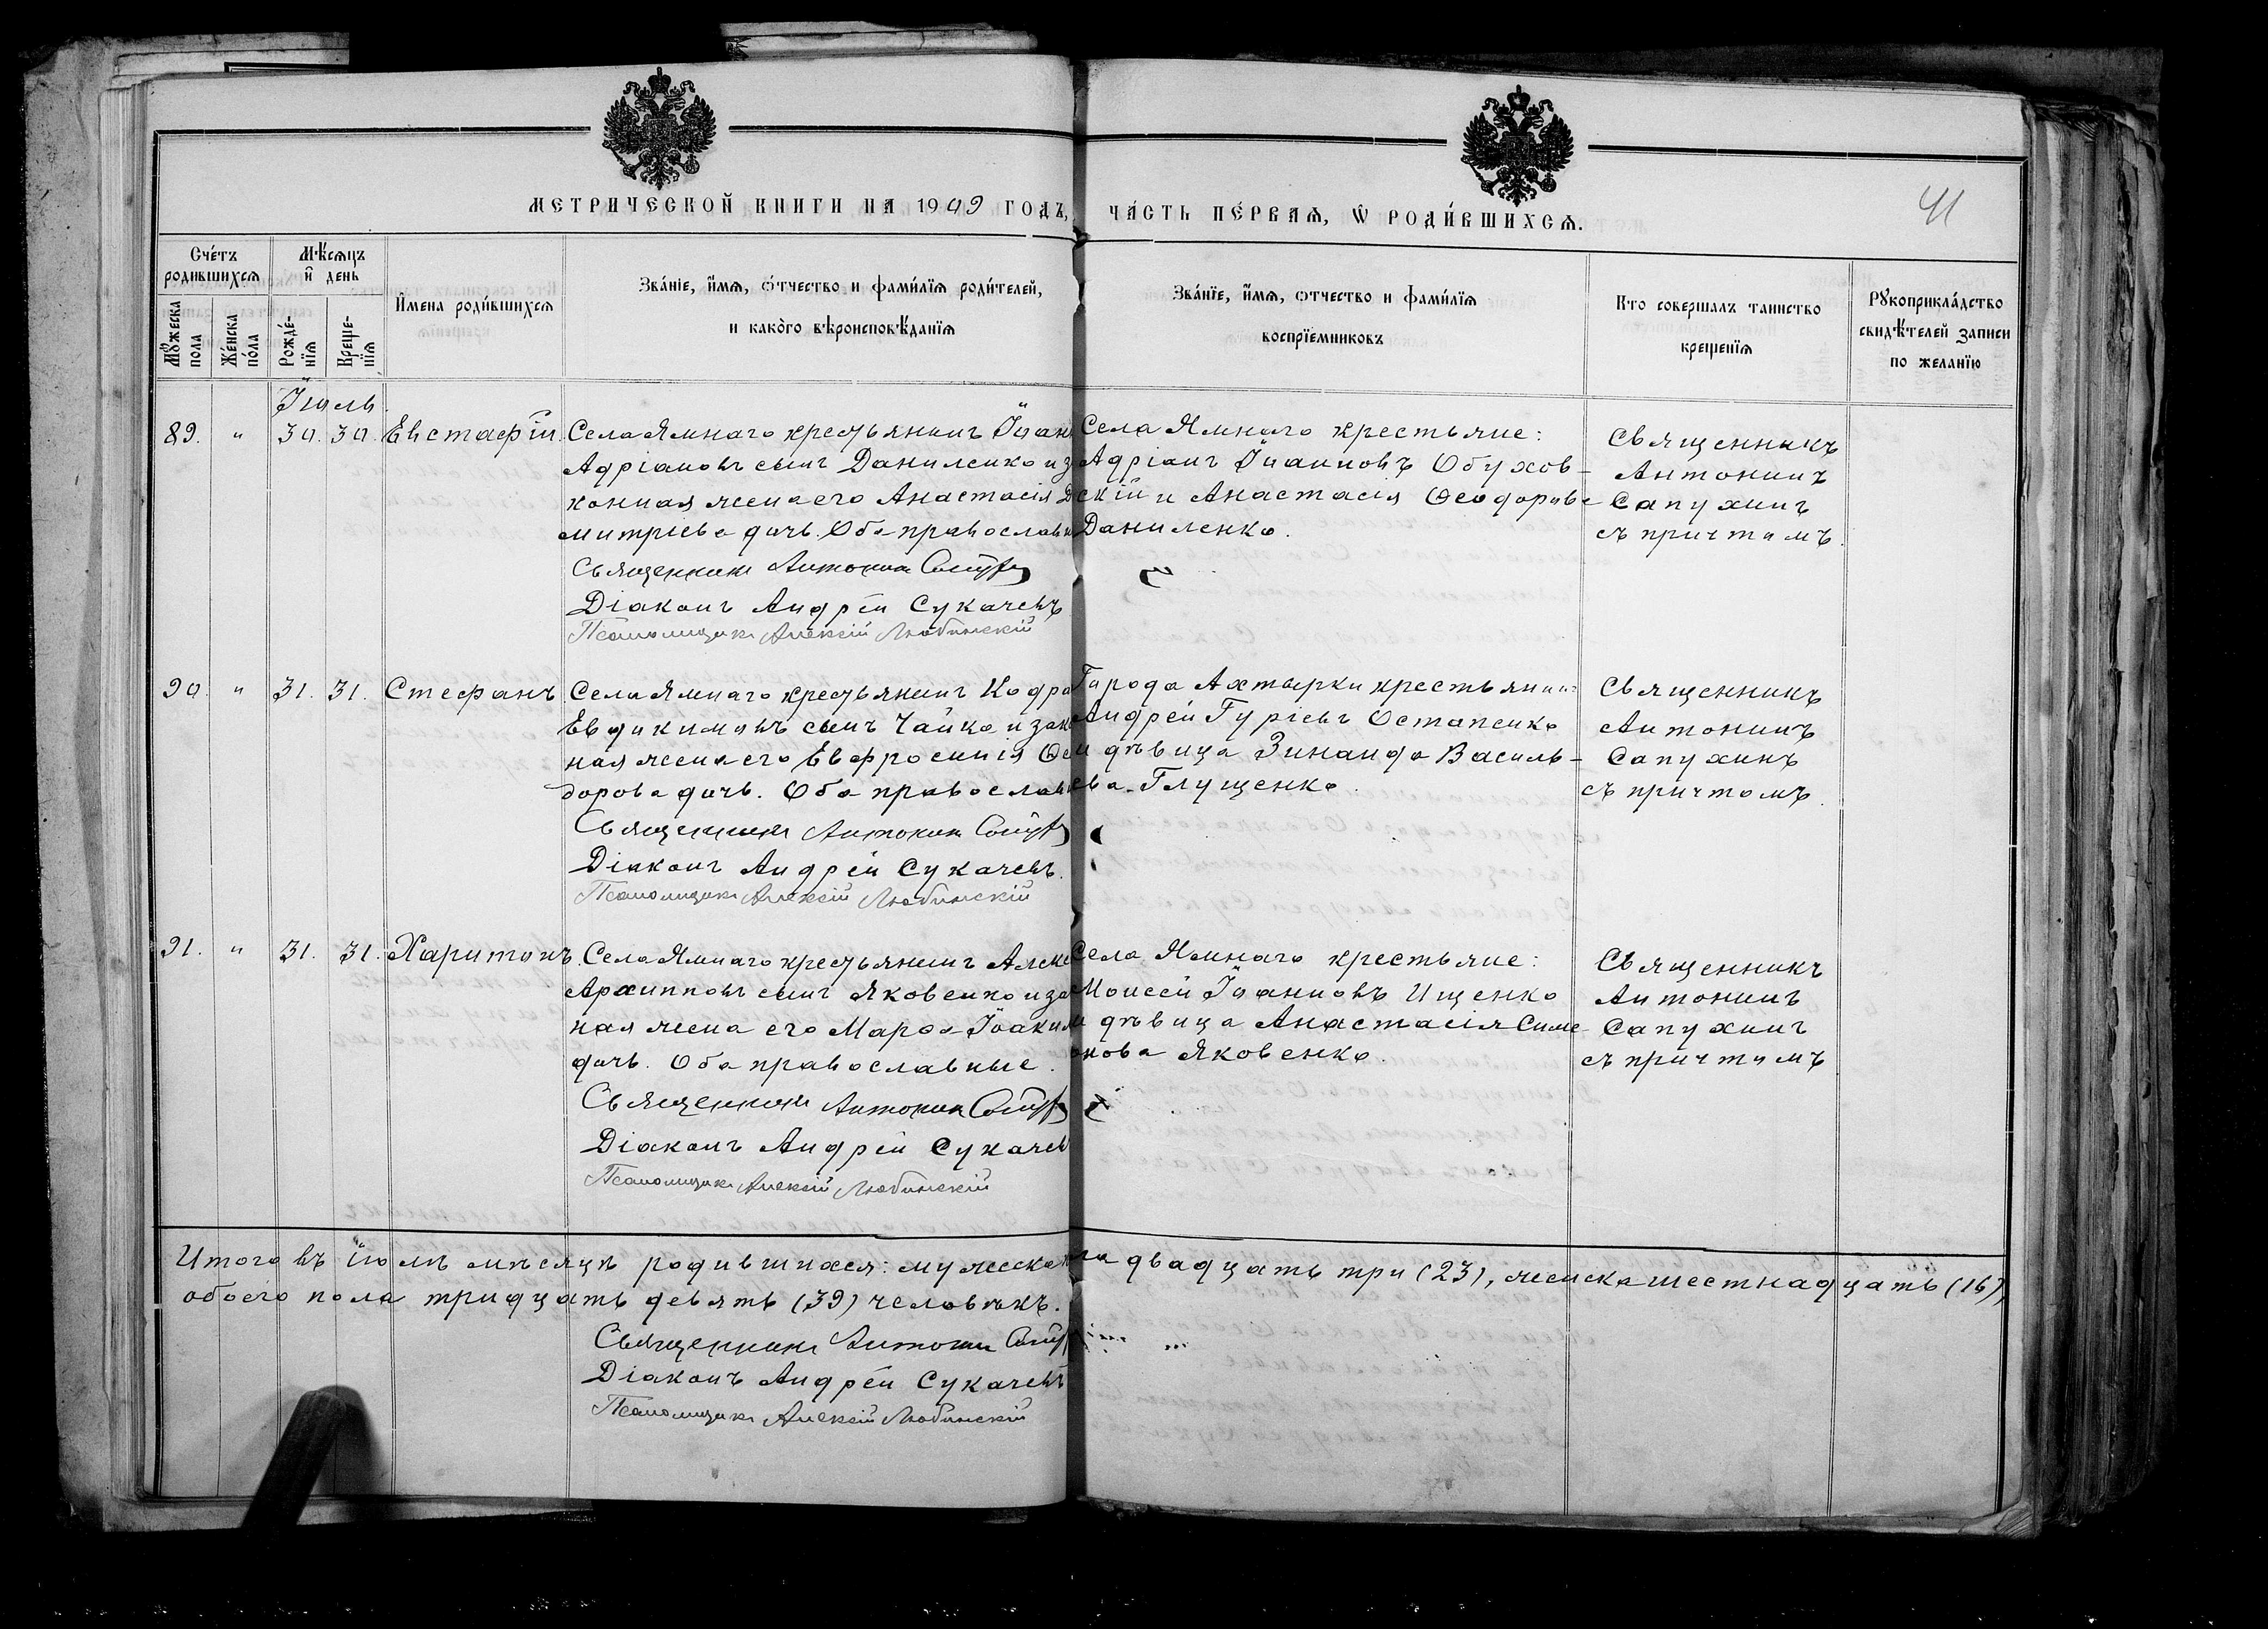 МЕТРИЧЕСКОЙ КНИГИ НА 1909 ГОДЪ, ЧА́СТЬ ПЕ́РВАѦ, Ѡ҆ РОДИ́ВШИХСѦ.
41
Сче́тъ родившихсѧ
Мꙋ́жеска пола
Же́нска по́ла
Мѣ́сѧцъ и҆ день
Рожде́нїѧ
Креще́нїѧ
И҆мена роди́вшихсѧ
Зва́нїе, и҆́мѧ, ѻ҆́тчество и фами́лїѧ роди́телей,
и како́го вѣроисповѣ́данїѧ
Зва́нїе, и҆́мѧ, ѻ҆тчество и фами́лїѧ
воспрїе́мниковъ
Кто совершалъ таинство
креще́нїѧ
Рꙋкоприкла́дство
свидѣ́телей записи
по желанїю
Іюль.
89. " 30. 30. Евстафій
Села Ямнаго крестьянинъ Іоан
Адріановъ сынъ Даниленко и за
конная жена его Анастасія Д
митріева дочь. Оба православн
Священникъ Антонин
Діаконъ Андрей Сукачевъ
Псаломщикъ Алексій Любинскій
Села Ямнаго крестьяне:
Адріанъ Іоанновъ Обухов-
скій и Анастасія Ѳеодорова
Даниленко.
Священникъ
Антонинъ
Сапухинъ
съ причтомъ.
90. " 31. 31. Стефанъ
Села Ямнаго крестьянинъ Кодра
Евдокимовъ сынъ Чайко и зако
ная жена его Евфросинія Ѳео
дорова дочь. Оба православн
Священникъ Антонин
Діаконъ Андрей Сукачевъ.
Псаломщикъ Алексій Любинскій
Города Ахтырки крестьянинъ
Андрей Гуріевъ Остапенко
и дѣвица Зинаида Василь-
ева Глущенко.
Священникъ
Антонинъ
Сапухинъ
съ причтомъ.
91. " 31. 31. Харитонъ.
Села Ямнаго крестьянинъ Алек
Архипповъ сынъ Яковенко и зако
ная жена его Марѳа Іоаким
дочь. Оба православные.
Священникъ Антонин
Діаконъ Андрей Сукачев
Псаломщикъ Алексій Любинскій
Села Ямнаго крестьяне:
Моисей Іоанновъ Ищенко
и дѣвица Анастасія Симе-
онова Яковенко.
Священникъ
Антонинъ
Сапухинъ
съ причтомъ
Итого въ іюлѣ мѣсяцѣ родившихся: мужеска пола двадцать три (23), женска шестнадцать (16),
обоего пола тридцать девять (39) человѣкъ.
Священникъ Антонин
Діаконъ Андрей Сукачевъ
Псаломщикъ Алексій Любинскій